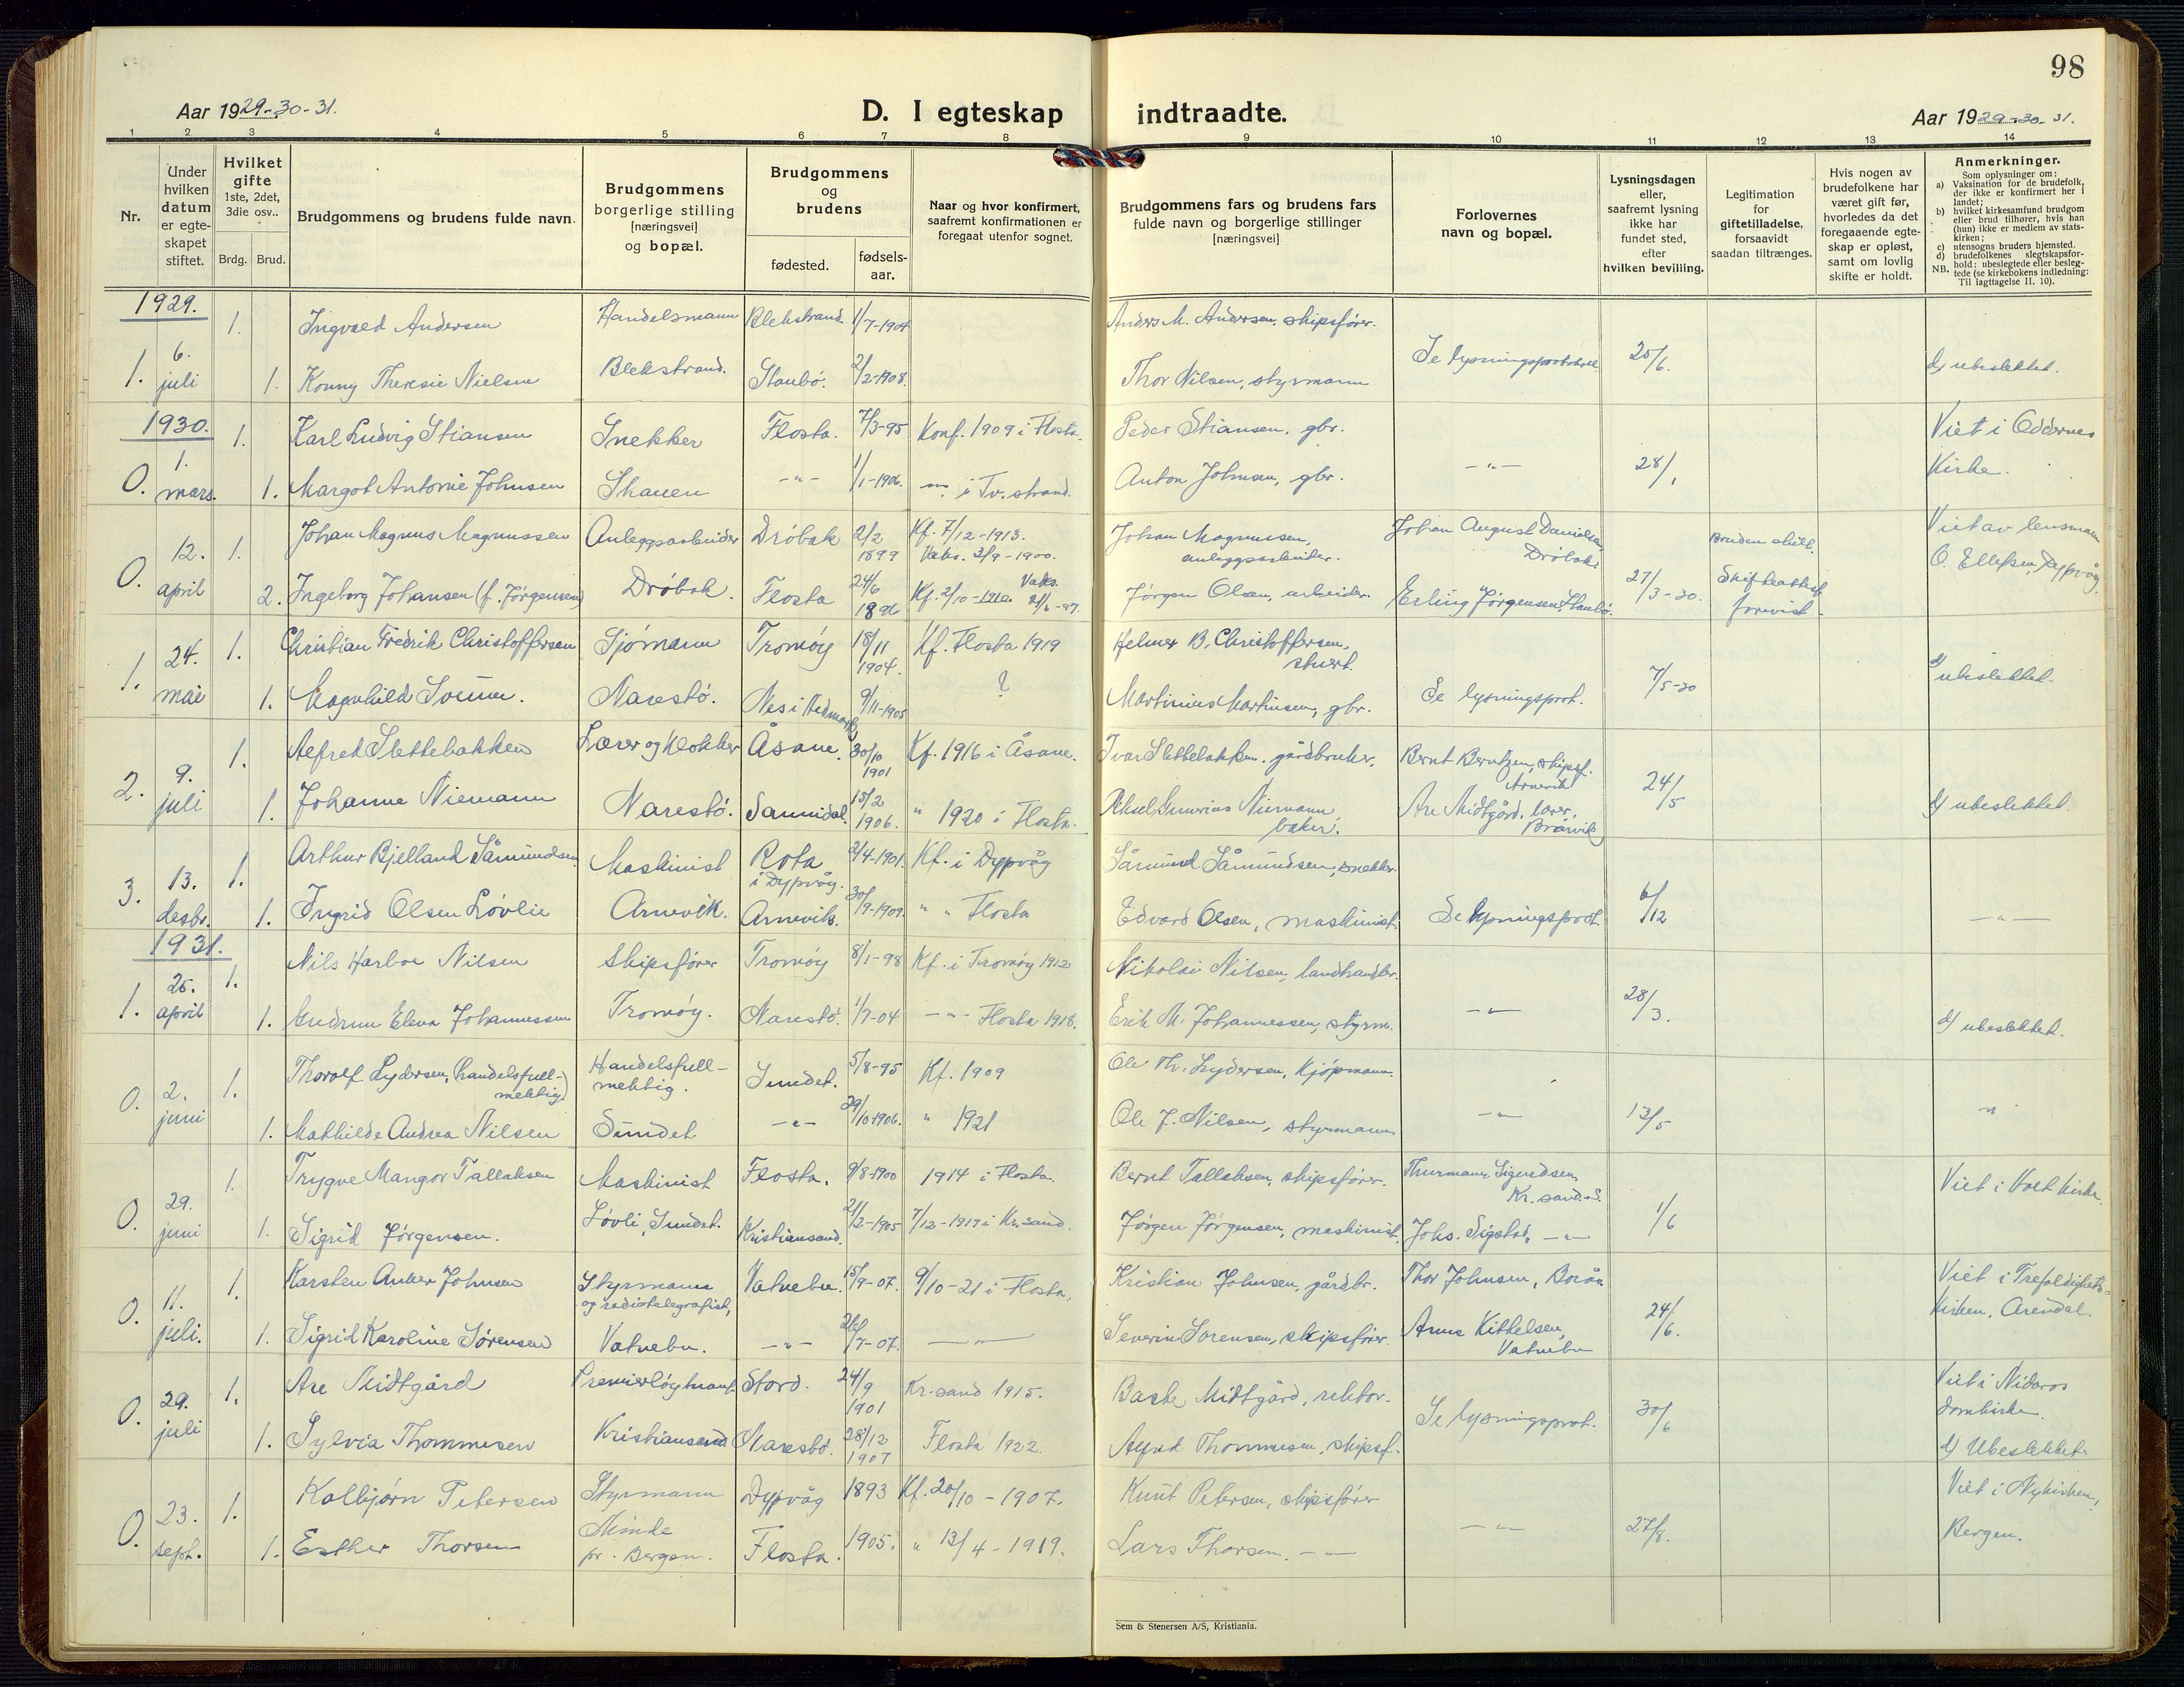 98
Aar 1929-30-31.
D. I egteskap indtraadte.
Aar 1929-30-31.
1 2 3 4 5 6 7. 8 9 10 11 12 13 14
Nr.
Under hvilken datum er egte-skapet stiftet.
Hvilket gifte 1ste, 2det, 3die osv..
Brdg. Brud.
Brudgommens og brudens fulde navn.
Brudgommens borgerlige stilling [næringsvei] og bopæl.
Brudgommens og brudens
fødested. fødsels-aar.
Naar og hvor konfirmert, saafremt konfirmationen er foregaat utenfor sognet.
Brudgommens fars og brudens fars fulde navn og borgerlige stillinger [næringsvei]
Forlovernes navn og bopæl.
Lysningsdagen eller, saafremt lysning ikke har fundet sted, efter hvilken bevilling.
Legitimation for giftetilladelse, forsaavidt saadan tiltrænges.
Hvis nogen av brudefolkene har været gift før, hvorledes da det foregaaende egte-skap er opløst, samt om lovlig skifte er holdt.
Anmerkninger.
Som oplysninger om:
a) Vaksination for de brudefolk, der ikke er konfirmert her i landet;
b) hvilket kirkesamfund brudgom eller brud tilhører, hvis han (hun) ikke er medlem av stats-kirken;
c) utensogns bruders hjemsted.
d) brudefolkenes slegtskapsfor-hold: ubeslegtede eller besleg-tede (se kirkebokens indledning:
NB. Til iagttagelse II. 10).
1929.
1. Ingvald Andersen Handelsmann Blekstrand 1/7-1904 Anders M. Andersen, skipsfører.
1. 6. juli 1. Konny Theresie Nielsen Blekstrand. Staubö. 2/2-1908. Thor Nilsen, styrmann Se lysningsprotokoll 25/6. d) ubeslektet.
1930.
1. Karl Ludvig Stiansen Snekker Flosta. 7/3-95 Konf. 1909 i Flosta. Peder Stiansen, gbr. Viet i Oddernes
0. 1. mars. 1. Margot Antonie Johnsen Skauen -"- 1/1-1906. -"- i Tv.strand. Anton Johnsen, gbr. -"- 28/1 Kirke.
0. 12. april 1. Johan Magnus Magnussen Anleggsarbeider Dröbak 2/2 1899 Kf. 7/12-1913. Vaks. 2/9-1900. Johan Magnussen, anleggsarbeider. Johan August Danielsen, Dröbak. Bruden skilt. Viet av lensmann
2. Ingeborg Johansen (f. Jörgensen) Dröbak. Flosta 24/6 1896 Kf. 2/10-1910. Vaks. Jörgen Olsen, arbeider. Erling Jörgensen, Staubö. 27/3-30. Skifteattest forevist. O. Ellefsen, Dypvåg
1. 24. mai 1. Christian Fredrik Christoffersen Sjömann Tromöy 18/11 1904. Kf. Flosta 1919 Helmer B. Christoffersen, stuert.
1. Magnhild Narestö. Nes i Hedmark 9/11-1905 ? Martinius Martinsen, gbr. Se lysningsprot. 7/5-30 d) ubeslektet.
2. 9. juli 1. Alfred Slettebakken Lærer og Klokker Åsane. 30/10 1901 Kf. 1916 i Åsane. Ivar Slettebakken, gårdbruker. Bernt Berntzen, skipsf. Arnevik
1. Johanne Niemann Narestö. Sannidal 15/2 1906. " 1920 i Flosta. Aksel Niemann baker. Are Midtgård, lærer, 24/5 d) ubeslektet.
3. 13. desbr. 1. Arthur Bjelland Såmundsen Maskinist Rota i Dypvåg. 2/4-1901. Kf. i Dypvåg Såmund Såmundsen, snekker.
1. Ingrid Olsen Lövlie Arnevik. Arnevik. 30/9-1909. " " Flosta Edvard Olsen, maskinist. Se lysningsprot. 6/12 -"-
1931.
1. 25. april 1. Nils Harboe Nilsen Skipsförer Tromöy 8/1-98 Kf. i Tromöy 1912 Nikolai Nilsen, landhandler.
1. Gudrun Elena Johannessen Tromöy. Narestö. 1/7-04 -"- Flosta 1918. Erik M. Johannessen, styrm. -"- 28/3. d) ubeslektet.
0. 2. juni 1. Thorolf Lydersen, (handelsfull-mektig) Handelsfull-mektig. Sundet. 5/8-95 Kf. 1909 Ole Th. Lydersen, Kjöpmann.
1. Mathilde Andrea Nilsen Sundet -"- 29/10-1906. " 1921 Ole J. Nilsen, styrmann -"- 13/5 -"-
0. 29. juni 1. Trygve Mangor Tallaksen Maskinist Flosta. 9/8-1900 1914 i Flosta. Bernt Tallaksen, skipsförer. Thurmann Sigurdsen, Kr.sand S. Viet i Holt kirke.
1. Sigrid Jörgensen. Lövli, Sundet. Kristiansand. 21/2-1905 7/12-1919 i Kr.sand. Jörgen Jörgensen, maskinist. Johs. -"- 1/6
0. 11. juli. 1. Karsten Anker Johnsen Styrmann og radiotelegrafist, Vatnebu. 15/9-07. 9/10-21 i Flosta. Kristian Johnsen, gårdbr. Thor Johnsen, Borön Viet i Trefoldighets-
1. Sigrid Karoline Sörensen Vatnebu. -"- 26/7-07. -"- Severin Sorensen, skipsförer. Arne Kittelsen, Vatnebu 24/6. Kirken. Arendal.
0. 29. juli 1. Are Midtgård Premierlöytnant Stord. 24/9 1901 Kr.sand 1915. Baste Midtgård, rektor. Viet i Nidaros domkirke.
1. Sylvia Thommesen Kristiansand Narestö. 28/12 1907 Flosta 1922. Alfred Thommesen, skipsf. Se lysningsprot. 30/6 d) Ubeslektet.
0. 23. sept. 1. Kolbjörn Petersen Styrmann Dypvåg 1893 Kf. 20/10-1907. Knut Petersen, skipsförer Viet i Nykirken,
1. Esther Thorsen Minde pr. Bergen. Flosta. 1905. " 13/4-1919. Lars Thorsen. -"- -"- 27/8. Bergen.
Sem & Stenersen A/S, Kristiania.